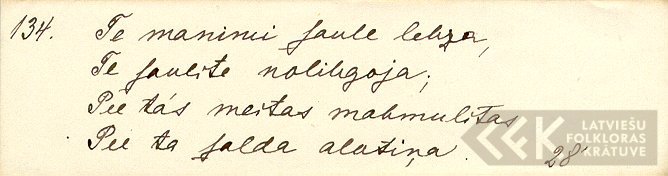 134. Te maninui saule lehza,
Te saulite nolihgoja;
Pee tás meitas mahmulitas
Pee ta salda alutiņa.
28'
LATVIEŠU
FOLKLORAS
KRĀTUVE